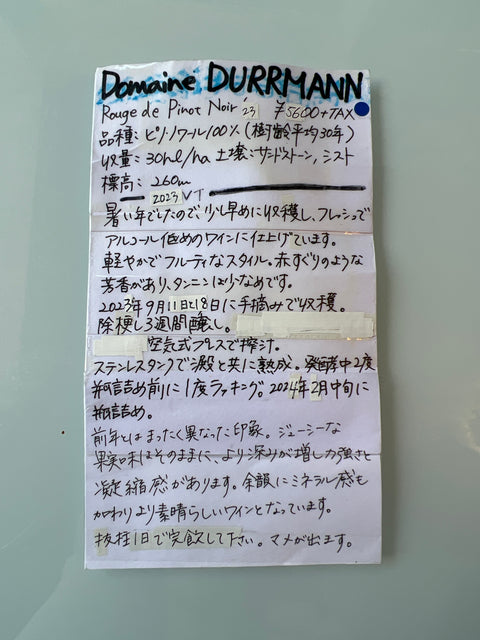 Domaine DURRMANN
Rouge de Pinot Noir '23 ¥5600+TAX
品種：ピノ・ノワール100%（樹齢平均30年）
収量：30hl/ha 土壌：サンドストーン，シスト
標高：260m
2023VT
暑い年でしたので少し早めに収穫し、フレッシュで
アルコール低めのワインに仕上げています。
軽やかでフルーティなスタイル。赤すぐりのような
芳香があり、タンニンは少なめです。
2023年9月11日と18日に手摘みで収穫。
除梗し3週間醸し。
空気式プレスで搾汁。
ステンレスタンクで澱と共に熟成。発酵中2度
瓶詰め前に1度ラッキング。2024年2月中旬に
瓶詰め。
前年とはまったく異なった印象。ジューシーな
果実味はそのままに、より深みが増し力強さと
凝縮感があります。余韻にミネラル感も
加わりより素晴らしいワインとなっています。
抜栓1日で完飲して下さい。マメが出ます。